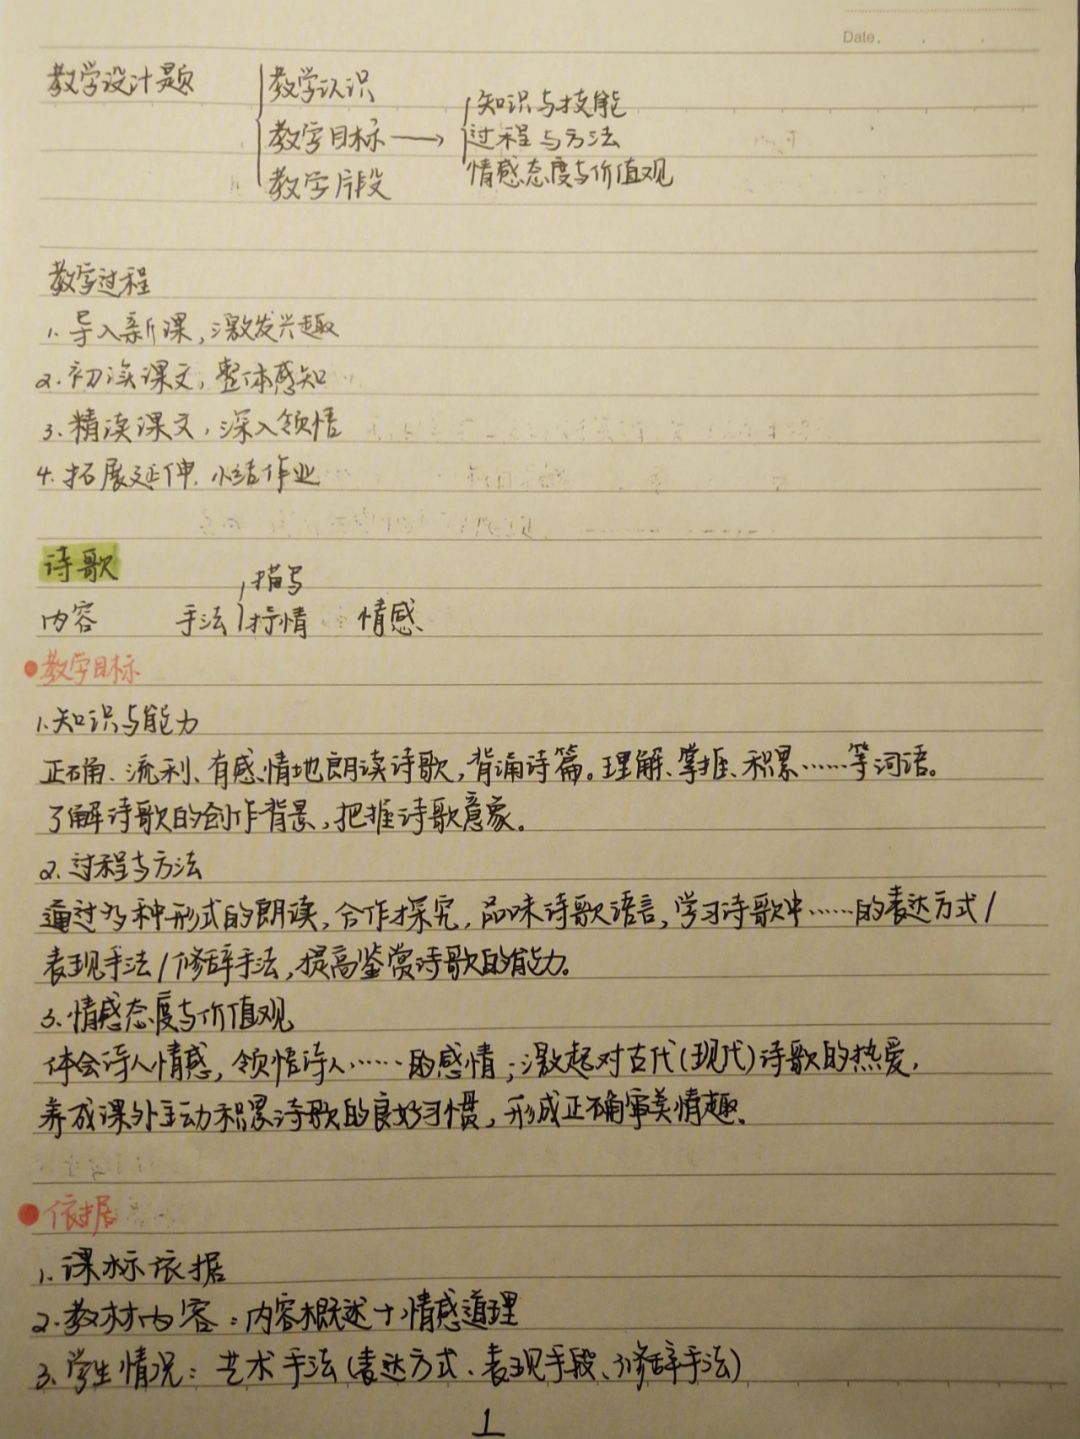 Date.
教学设计题
教学认识
教学目标 → 知识与技能
过程与方法
情感态度与价值观
教学片段
教学过程
1. 导入新课，激发兴趣
2. 初读课文，整体感知
3. 精读课文，深入领悟
4. 拓展延伸，小结作业
诗歌
内容 手法 描写
抒情 情感
教学目标
1. 知识与能力
正确、流利、有感情地朗读诗歌，背诵诗篇。理解、掌握、积累……等词语。
了解诗歌的创作背景，把握诗歌意象。
2. 过程与方法
通过多种形式的朗读，合作探究，品味诗歌语言，学习诗歌中……的表达方式/
表现手法/修辞手法，提高鉴赏诗歌的能力。
3. 情感态度与价值观
体会诗人情感，领悟诗人……的感情；激起对古代(现代)诗歌的热爱，
养成课外主动积累诗歌的良好习惯，形成正确审美情趣。
依据
1. 课标依据
2. 教材内容：内容概述+情感道理
3. 学生情况：艺术手法(表达方式、表现手段、修辞手法)
1